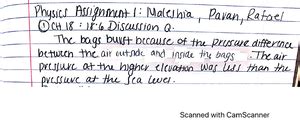 Physics Assignment 1: Maleshia, Pavan, Rafael
① Ch 18: 18.6 Discussion Q.
The bags burst because of the pressure difference
between the air outside and inside the bags. The air
pressure at the higher elevation was less than the
pressure at the sea level.
Scanned with CamScanner